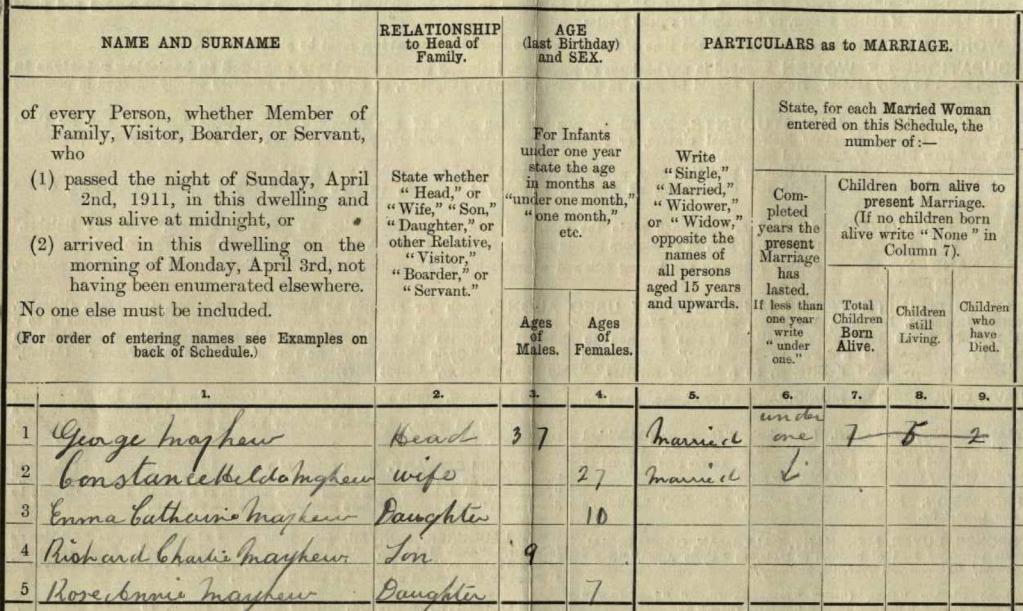 NAME AND SURNAME
RELATIONSHIP
to Head of
Family.
AGE
(last Birthday)
and SEX.
PARTICULARS as to MARRIAGE.
of every Person, whether Member of
Family, Visitor, Boarder, or Servant,
who
(1) passed the night of Sunday, April
2nd, 1911, in this dwelling and
was alive at midnight, or
(2) arrived in this dwelling on the
morning of Monday, April 3rd, not
having been enumerated elsewhere.
No one else must be included.
(For order of entering names see Examples on
back of Schedule.)
State whether
"Head," or
"Wife," "Son,"
"Daughter," or
other Relative,
"Visitor,"
"Boarder," or
"Servant."
For Infants
under one year
state the age
in months as
"under one month,"
"one month,"
etc.
Ages
of
Males.
Ages
of
Females.
Write
"Single,"
"Married,"
"Widower,"
or "Widow,"
opposite the
names of
all persons
aged 15 years
and upwards.
State, for each Married Woman
entered on this Schedule, the
number of:—
Com-
pleted
years the
present
Marriage
has
lasted.
If less than
one year
write
"under
one."
Children born alive to
present Marriage.
(If no children born
alive write "None" in
Column 7).
Total
Children
Born
Alive.
Children
still
Living.
Children
who
have
Died.
1. 2. 3. 4. 5. 6. 7. 8. 9.
1 George Mayhew Head 37 Married under one 7 5 2
2 Constance Hilda Mayhew wife 27 Married
3 Emma Catharine Mayhew Daughter 10
4 Richard Charlie Mayhew Son 9
5 Rose Annie Mayhew Daughter 7